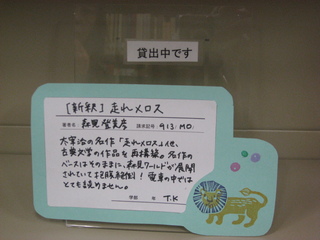 貸出中です
[新釈] 走れメロス
著者名 森見登美彦 請求記号 913.MO.
太宰治の名作「走れメロス」他、
古典文学の作品を再構築。名作の
ベースはそのままに、森見ワールドが展開
されていて抱腹絶倒！電車の中では
とても読めません。
学部 年 T.K